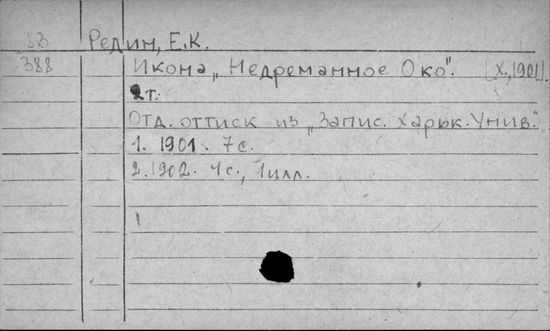 13 Редин, Е.К.
388 Икона „Недреманное Око". [Х., 1901].
2т.
Отд. оттиск из „Запис. Харьк. Унив."
1. 1901. 7 с.
2. 1902. 4 с., 1 илл.